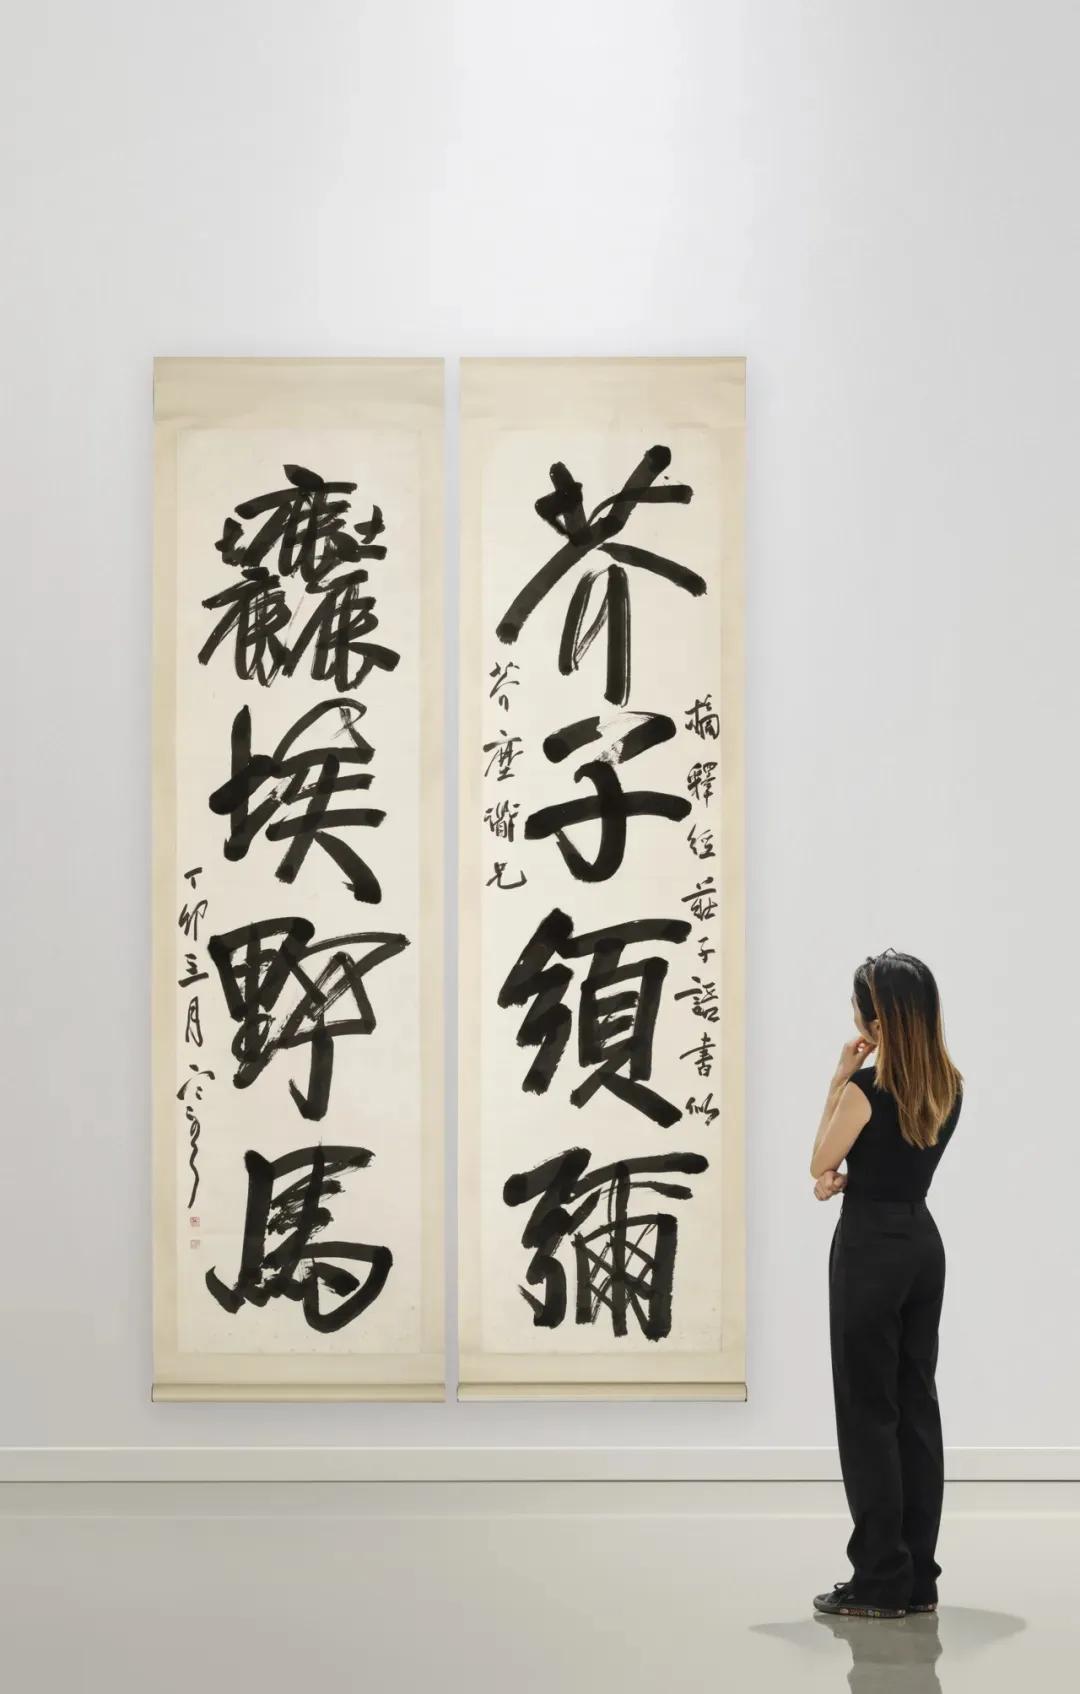 芥子須彌
摘釋經莊子語書似
芥塵衜兄
𪋻埃野馬
丁卯三月寒雲